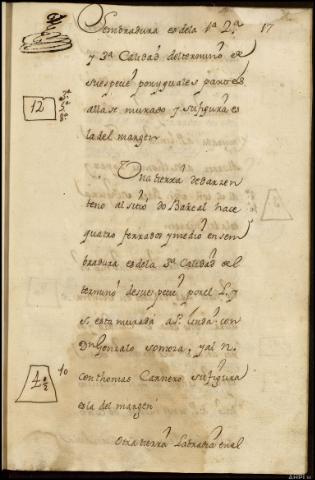 Sembradura es dela 1ª 2ª 17
y 3ª Calidad deltermino de
su especie por yguales partes
allase murado y su figura es
la del margen
12
Otra tierra de
teno al sitio do Bareal hace
quatro ferrados y medio en sem
bradura es dela 3ª Calidad del
termino de su especie por el L. y
S. esta murada a P. linda con
Dn Gonzalo Somoza, y al N.
con thomas Carnero su figura
es la del margen
4 1/2
10
Otra tierra Labradia en el